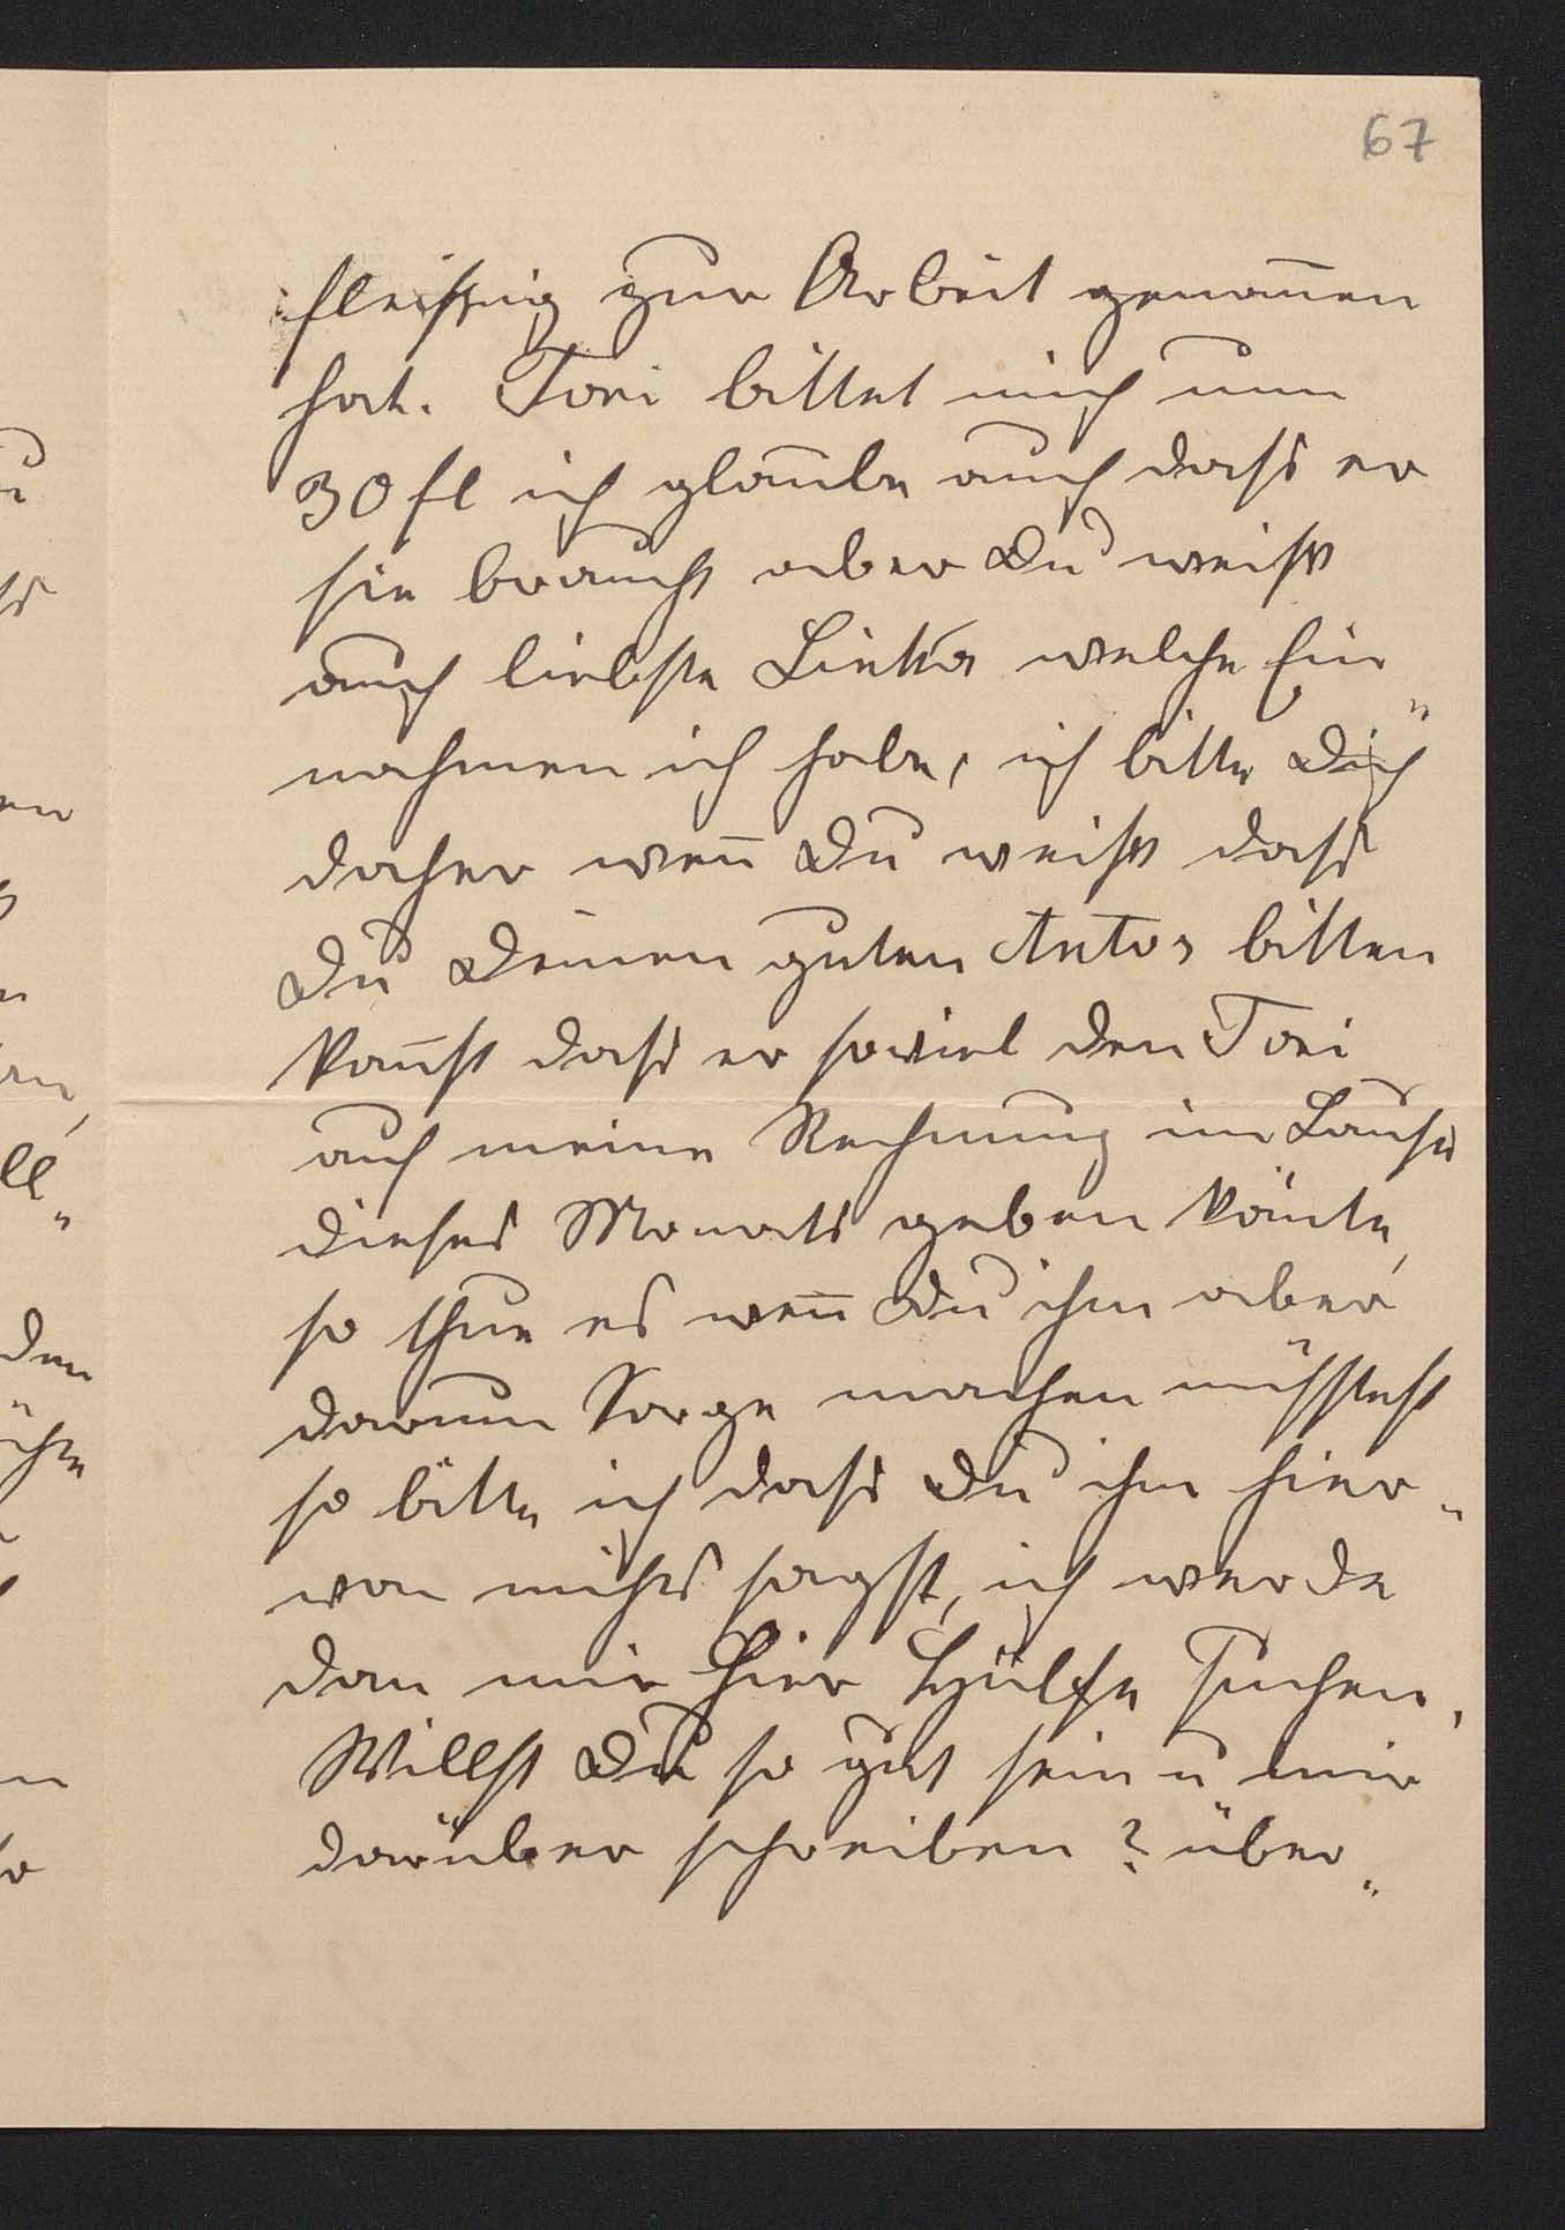 67
fleissig zur Arbeit genom̅en
hat. Toni bittet mich um
30 fl ich glaube auch dass er
sie braucht aber Du weisst
auch liebste Linka welche Ein„
nahmen ich habe, ich bitte Dich
daher wen̅ Du weisst dass
Du Deinen guten Antos bitten
kan̅st dass er soviel den Toni
auf meine Rechnung im Laufe
dieses Monats geben kön̅te,
so thue es wen̅ Du ihm aber
darum Sorge machen müsstest
so bitte ich dass Du ihm hier„
von nichts sagst, ich werde
dan mir hier Hülfe suchen,
Willst Du so gut sein u mir
darüber schreiben? über„